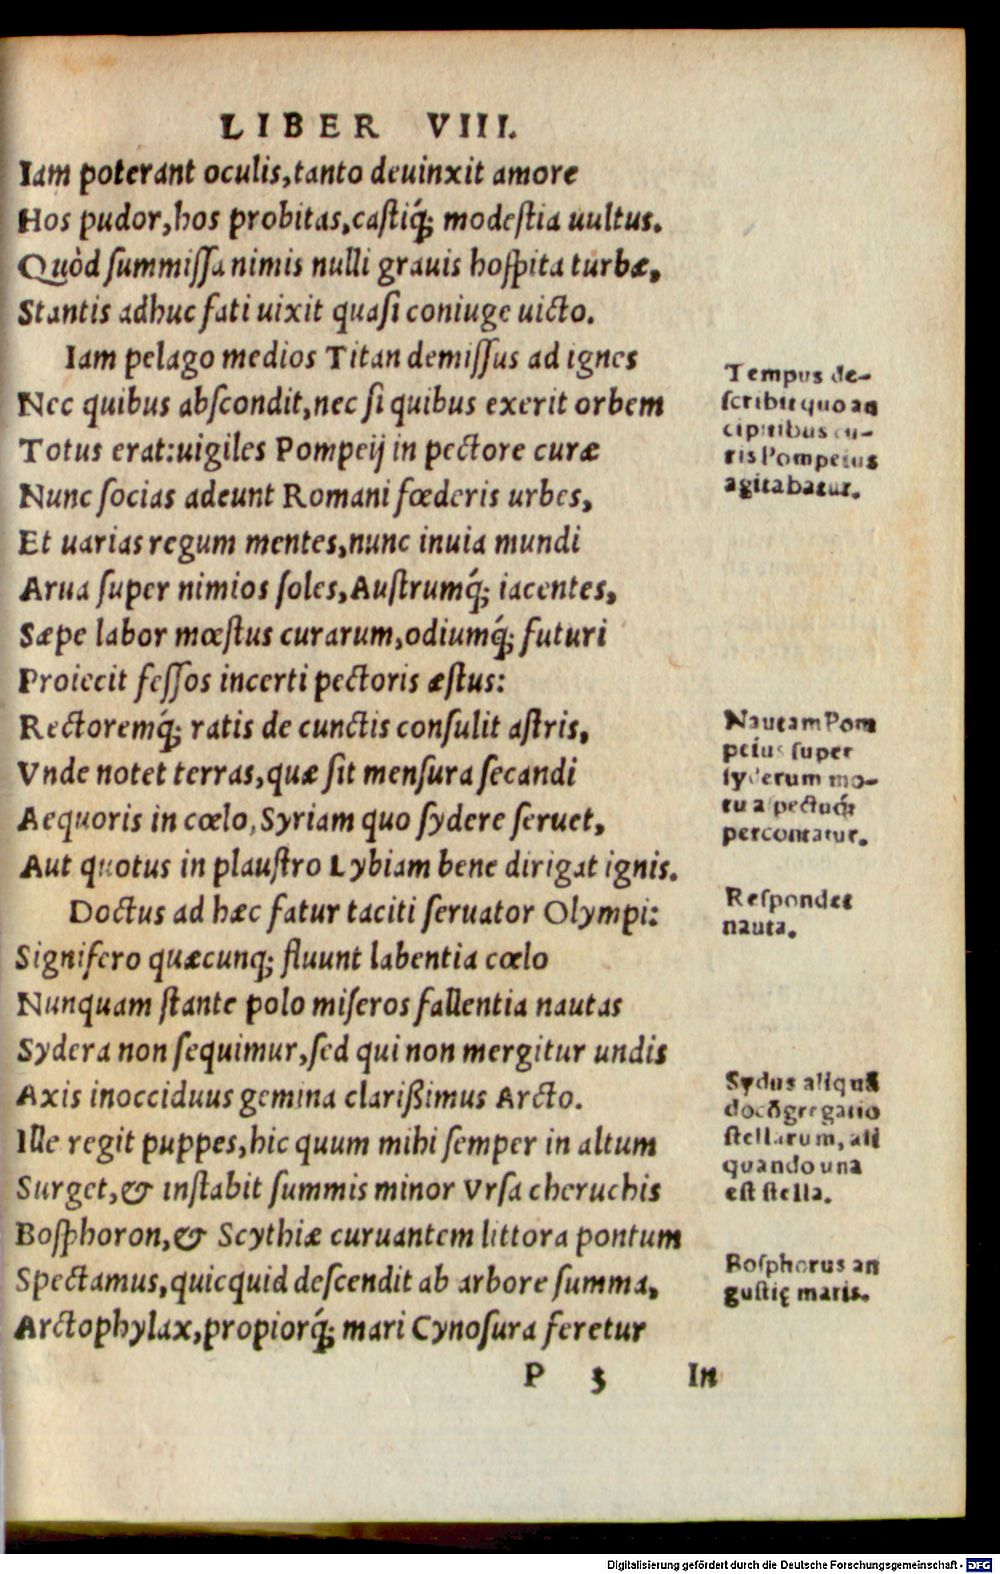 LIBER VIII.
Iam poterant oculis,tanto deuinxit amore
Hos pudor,hos probitas,castiq́; modestia uultus.
Quòd summissa nimis nulli grauis hospita turbæ,
Stantis adhuc fati uixit quasi coniuge uicto.
Iam pelago medios Titan demissus ad ignes
Nec quibus abscondit,nec si quibus exerit orbem
Totus erat:uigiles Pompeij in pectore curæ
Nunc socias adeunt Romani fœderis urbes,
Et uarias regum mentes,nunc inuia mundi
Arua super nimios soles,Austrumq́; iacentes,
Sæpe labor mœstus curarum,odiumq́; futuri
Proiecit fessos incerti pectoris æstus:
Rectoremq́; ratis de cunctis consulit astris,
Vnde notet terras,quæ sit mensura secandi
Aequoris in cœlo,Syriam quo sydere seruet,
Aut quotus in plaustro Lybiam bene dirigat ignis.
Doctus ad hæc fatur taciti seruator Olympi:
Signifero quæcunq; fluunt labentia cœlo
Nunquam stante polo miseros fallentia nautas
Sydera non sequimur,sed qui non mergitur undis
Axis inocciduus gemina clarißimus Arcto.
Ille regit puppes,hic quum mihi semper in altum
Surget,& instabit summis minor Vrsa cheruchis
Bosphoron,& Scythiæ curuantem littora pontum
Spectamus,quicquid descendit ab arbore summa,
Arctophylax,propiorq́; mari Cynosura feretur
P 3 In
Tempus de-
scribit quo an
cipitibus cu-
ris Pompeius
agitabatur.
Nautam Pom
peius super
syderum mo-
tu aspectuq́;
percontatur.
Respondet
nauta.
Sydus aliquã
do cõgregatio
stellarum, ali
quando una
est stella.
Bosphorus an
gustię maris.
Digitalisierung gefördert durch die Deutsche Forschungsgemeinschaft - DFG